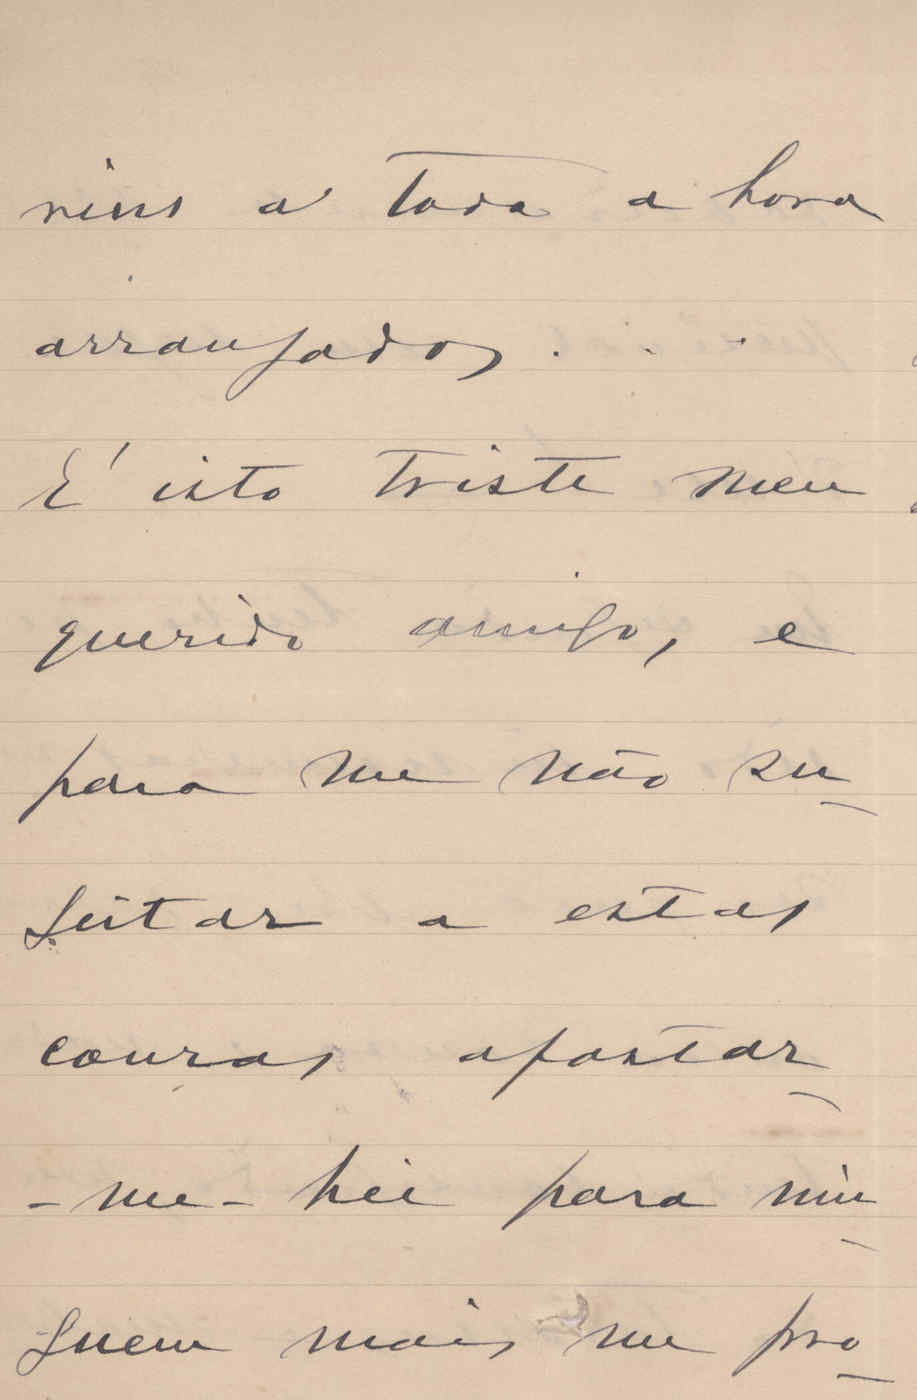 a toda a hora
arranjados. . .
É isto triste meu
querido amigo, e
para me não su-
jeitar a estas
cousas afastar-
-me-hei para nin-
guem mais me pro-